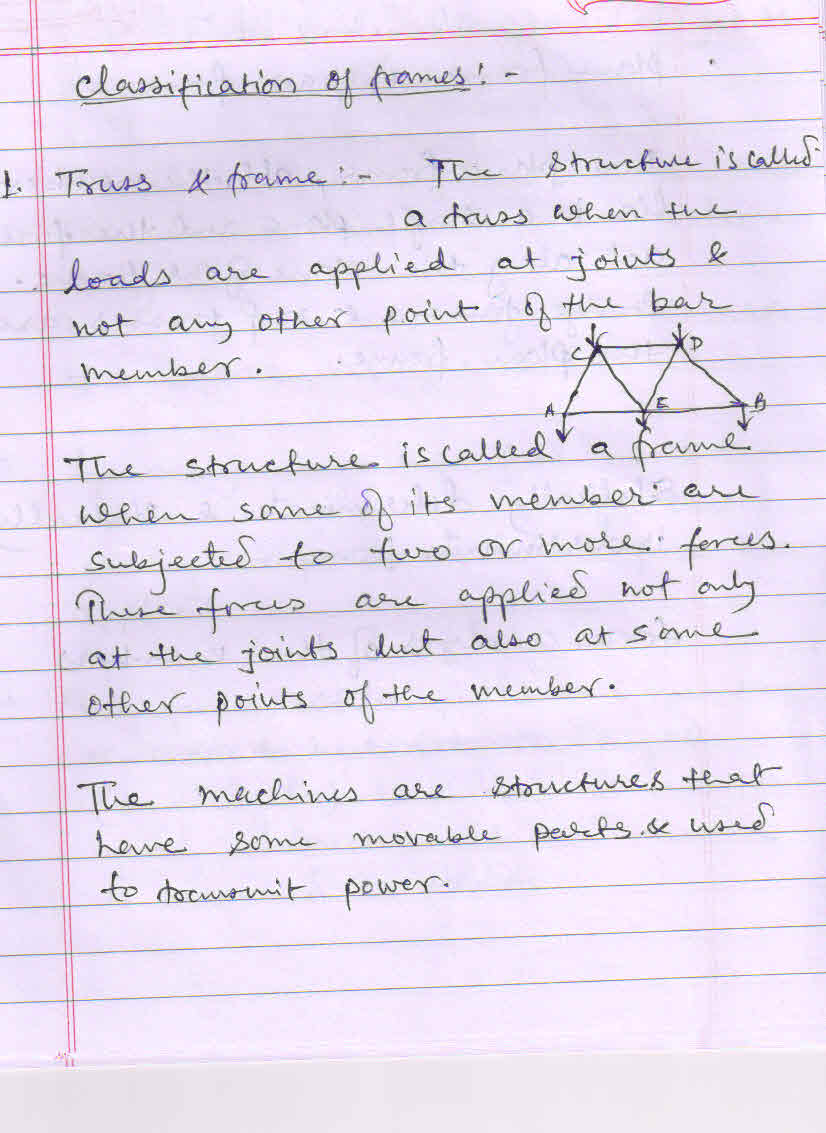 Classification of frames:-
1. Truss & frame:- The structure is called
a truss when the
loads are applied at joints &
not any other point of the bar
member.
C D
A E B
The structure is called a frame
when some of its member are
subjected to two or more forces.
These forces are applied not only
at the joints but also at some
other points of the member.
The machines are structures that
have some movable parts & used
to transmit power.